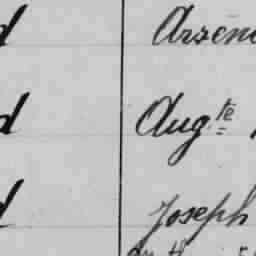 d Arsen
d Aug.te
d Joseph